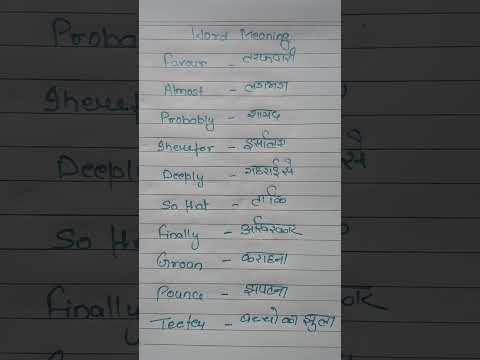 Word Meaning
Favour - तरफदारी
Almost - लगभग
Probably - शायद
Therefor - इसलिए
Deeply - गहराई से
So that - ताकि
Finally - आखिरकार
Groan - कराहना
Pounce - झपटना
Teeter - बच्चों का झुला